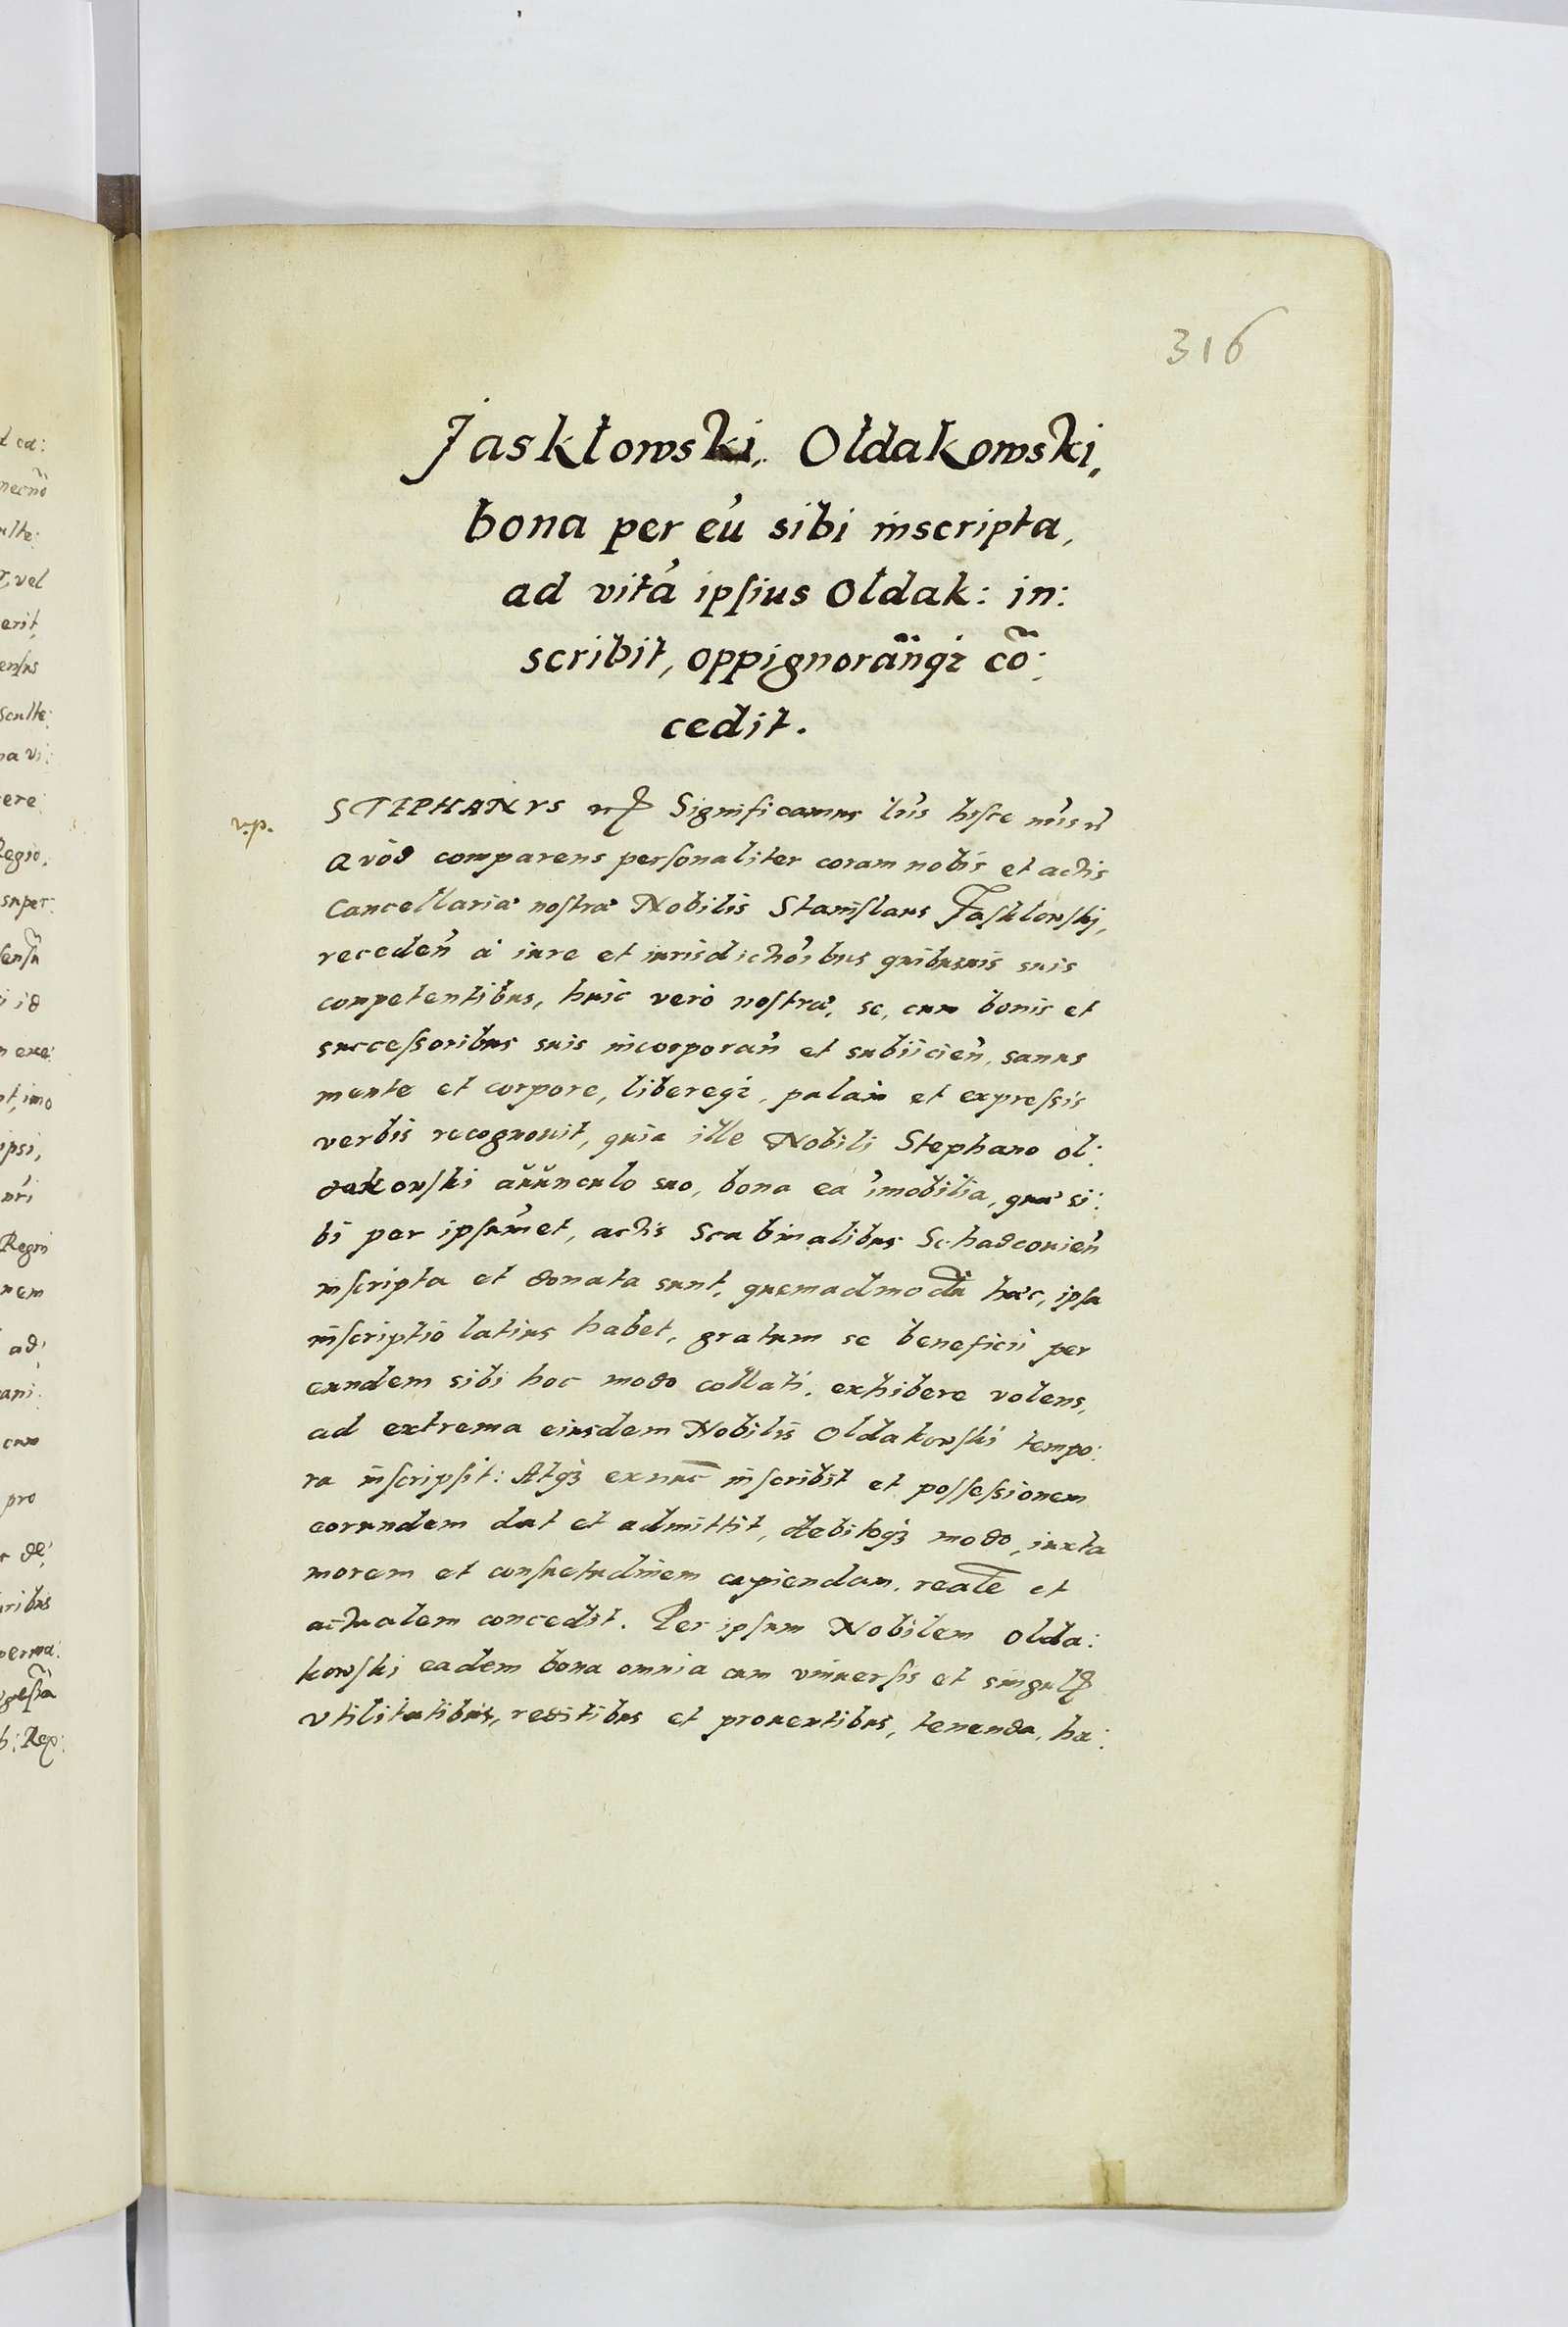 316
Jaskłowski, Oldakowski,
bona per eú sibi inscripta,
ad vitá ipſius Oldak: in:
scribit, oppignorãnqꝫ cõ:
cedit.
v.p.
STEPHANVS ꝛc̃ Significamus lr̃is hiſce nr̃is ꝛc̃
Qvód comparens perſonaliter coram nobis et actis
Cancellariæ noſtræ Nobilis Staniſlaus Jaſklowſkj,
receden̄ à iure et iurisdictiōibus quibusuis suis
competentibus, huic verò noſtræ, se, cum bonis et
succeſsoribus suis incorporan̄ et subiicien̄, sanus
mente et corpore, libereqꝫ, palàm et expreſsis
verbis recognouit, quia ille Nobili Stephano ol:
dakowſki auunculo suo, bona ea im̄obilia, quæ si:
bi per ipſum̄et, actis Scabinalibus Schadcouien̄
inſcripta et donata sunt, quemadmodū hæc, ipſa
inſcriptio latius habet, gratum se beneficii per
eundem sibi hoc modo collati, exhibere volens,
ad extrema eiusdem Nobilis Oldakowſki tempo:
ra inſcripſit: Atqꝫ exnūc inſcribit et poſſeſsionem
eorundem dat et admittit, debitoqꝫ modo, iuxta
morem et conſuetudinem capiendam, realē et
actualem concedit. Per ipſum Nobilem Olda:
kowſki eadem bona omnia cum vniuerſis et singulꝭ
vtilitatibus, reditibus et prouentibus, tenenda, ha: